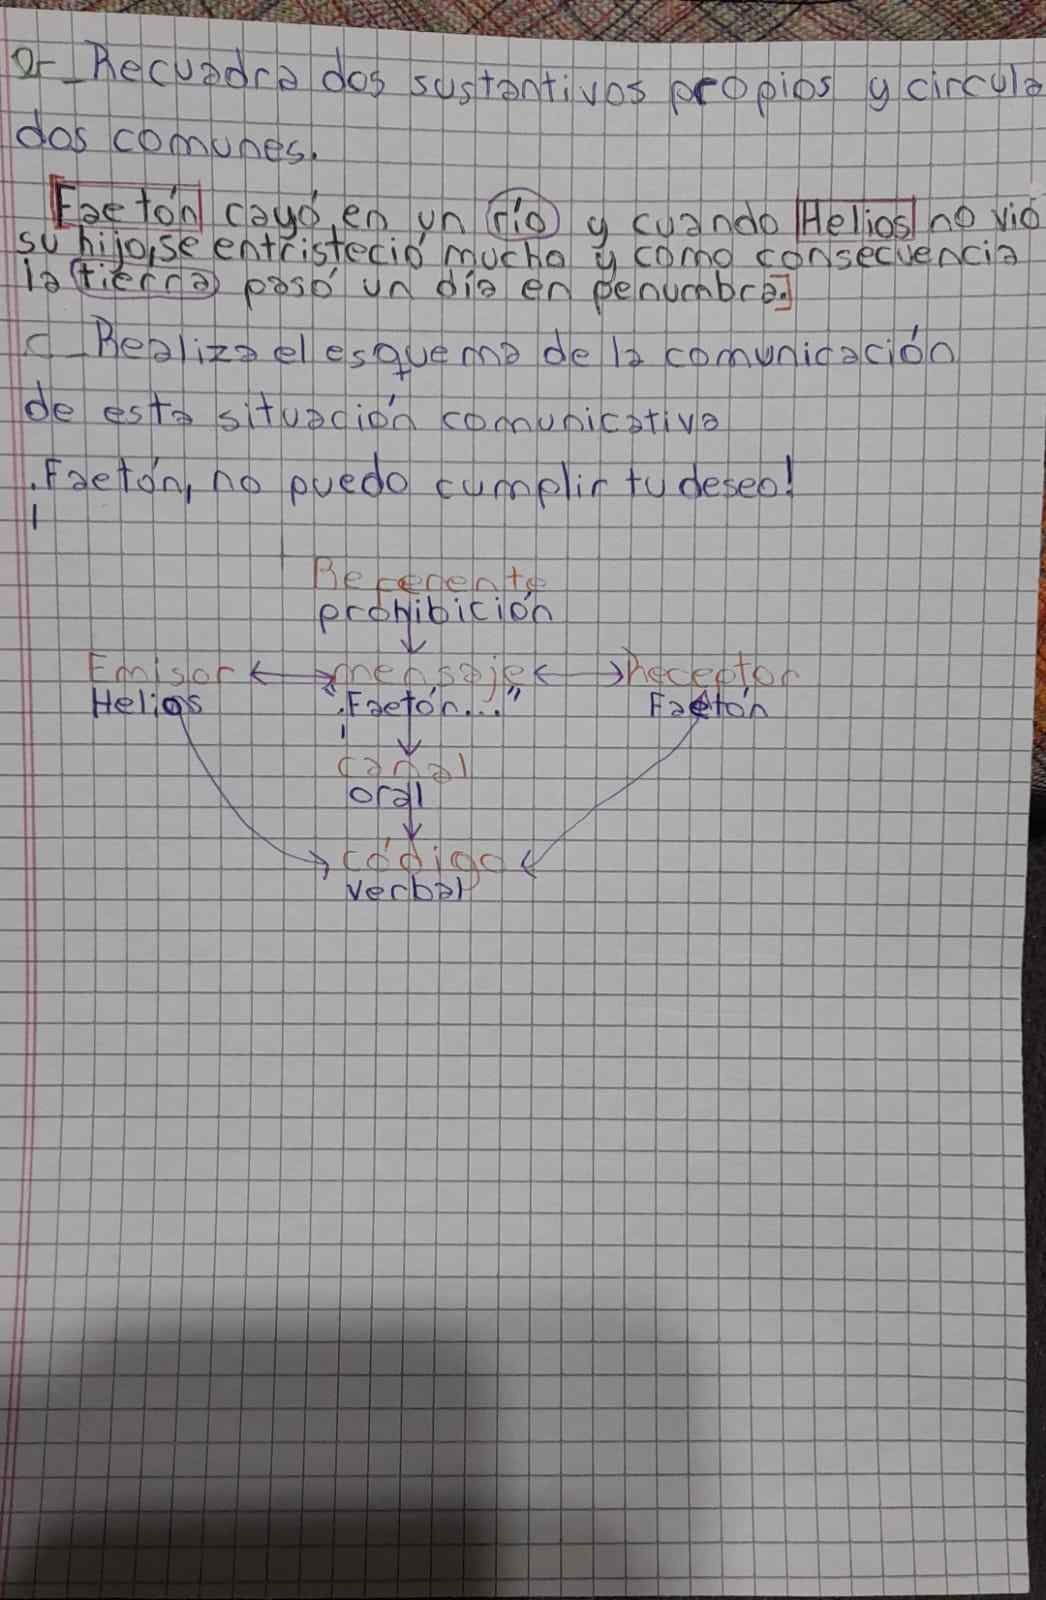 Recuadra dos sustantivos propios y circula
dos comunes.
Faetón cayó en un río y cuando Helios no vió
su hijo, se entristeció mucho y como consecuencia
la tierra pasó un día en penumbra.
c_ Realiza el esquema de la comunicación
de esta situación comunicativa
¡Faetón, no puedo cumplir tu deseo!
Referente
prohibición
Emisor mensaje Receptor
Helios "¡Faetón..." Faetón
canal
oral
código
verbal